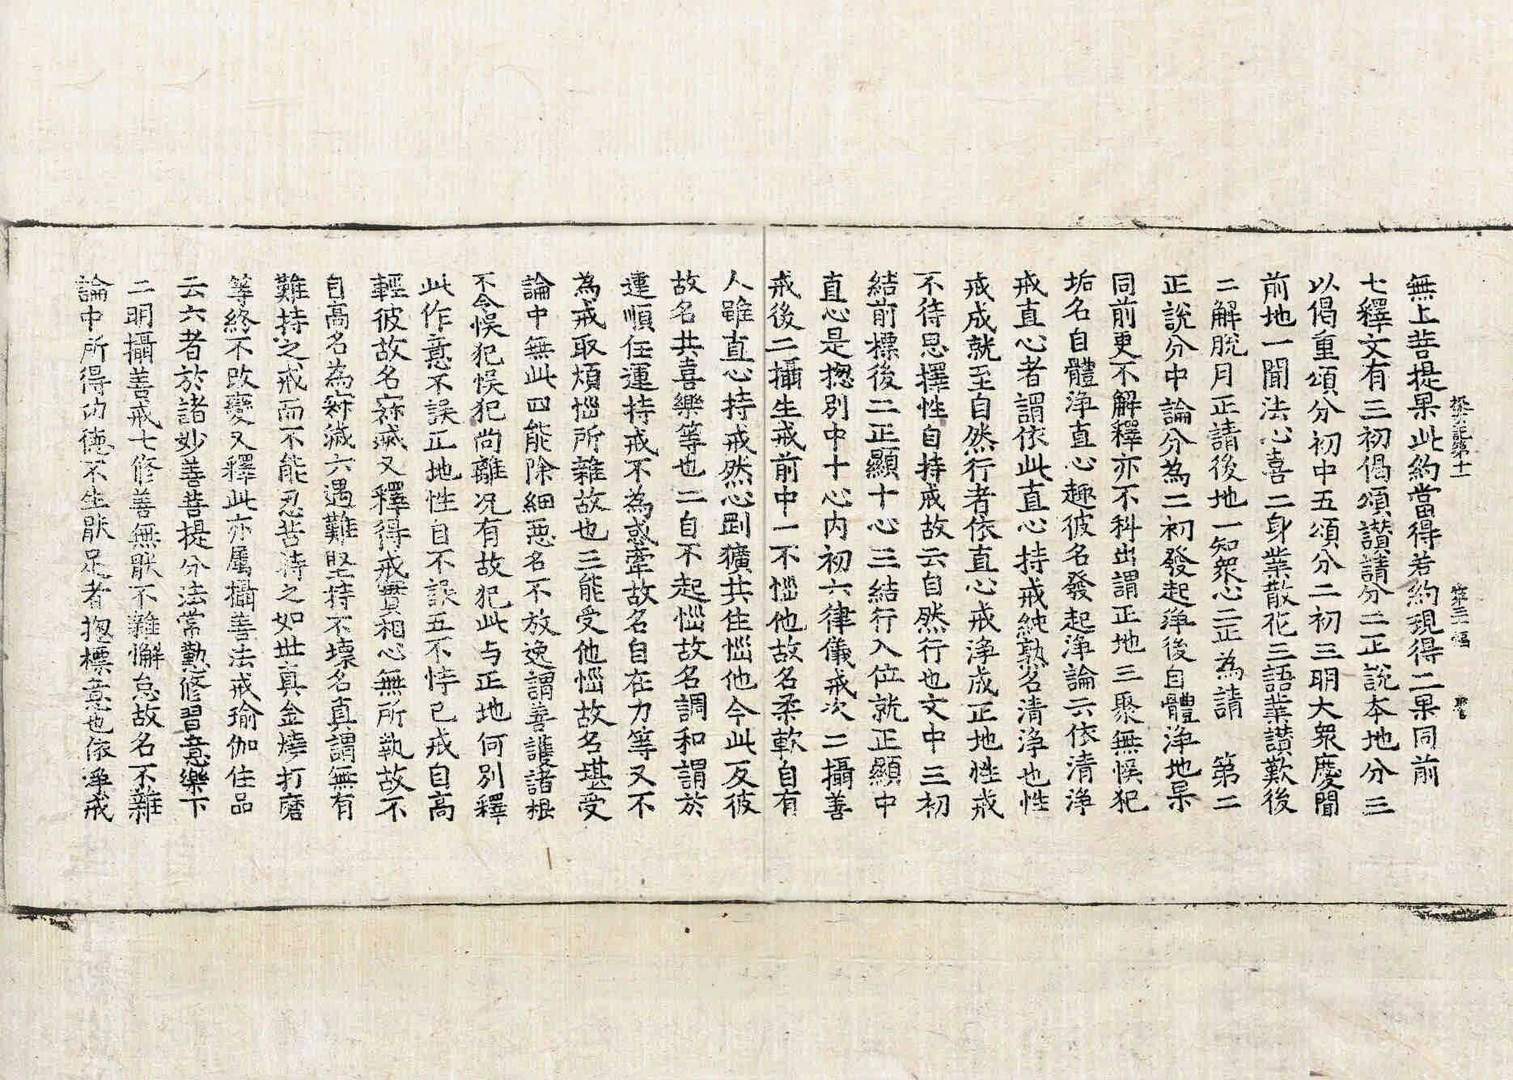 探玄記第十一　第三十二幅
無上菩提果此約當得若約現得二果同前
七釋文有三初偈頌讃請分二正說本地分三
以偈重頌分初中五頌分二初三明大衆慶聞
前地一聞法心喜二身業散花三語業讃歎後
二解脫月正請後地一知衆心二正為請　第二
正說分中論分為二初發起淨後自體淨地果
同前更不解釋亦不科出謂正地三聚無悞犯
垢名自體淨直心趣彼名發起淨論云依清淨
戒直心者謂依此直心持戒純熟名清淨也性
戒成就至自然行者依直心戒淨成正地性戒
不待思擇性自持戒故云自然行也文中三初
結前標後二正顯十心三結行入位就正顯中
直心是揔別中十心內初六律儀戒次二攝善
戒後二攝生戒前中一不惱他故名柔軟自有
人雖直心持戒然心剛獷共住惱他今此反彼
故名共喜樂等也二自不起惱故名調和謂於
違順任運持戒不為惑牽故名自在力等又不
為戒取煩惱所雜故也三能受他惱故名堪受
論中無此四能除細惡名不放逸謂善護諸根
不令悞犯悞犯尚離况有故犯此与正地何別釋
此作意不誤正地性自不誤五不恃己戒自高
輕彼故名寂滅又釋得戒實相心無所執故不
自高名為寂滅六遇難堅持不壞名真謂無有
難持之戒而不能忍苦持之如世真金燒打磨
等終不改變又釋此亦屬攝善法戒瑜伽住品
云六者於諸妙善菩提分法常勤修習意樂下
二明攝善戒七修善無猒不雜懈怠故名不雜
論中所得功德不生猒足者揔標意也依淨戒